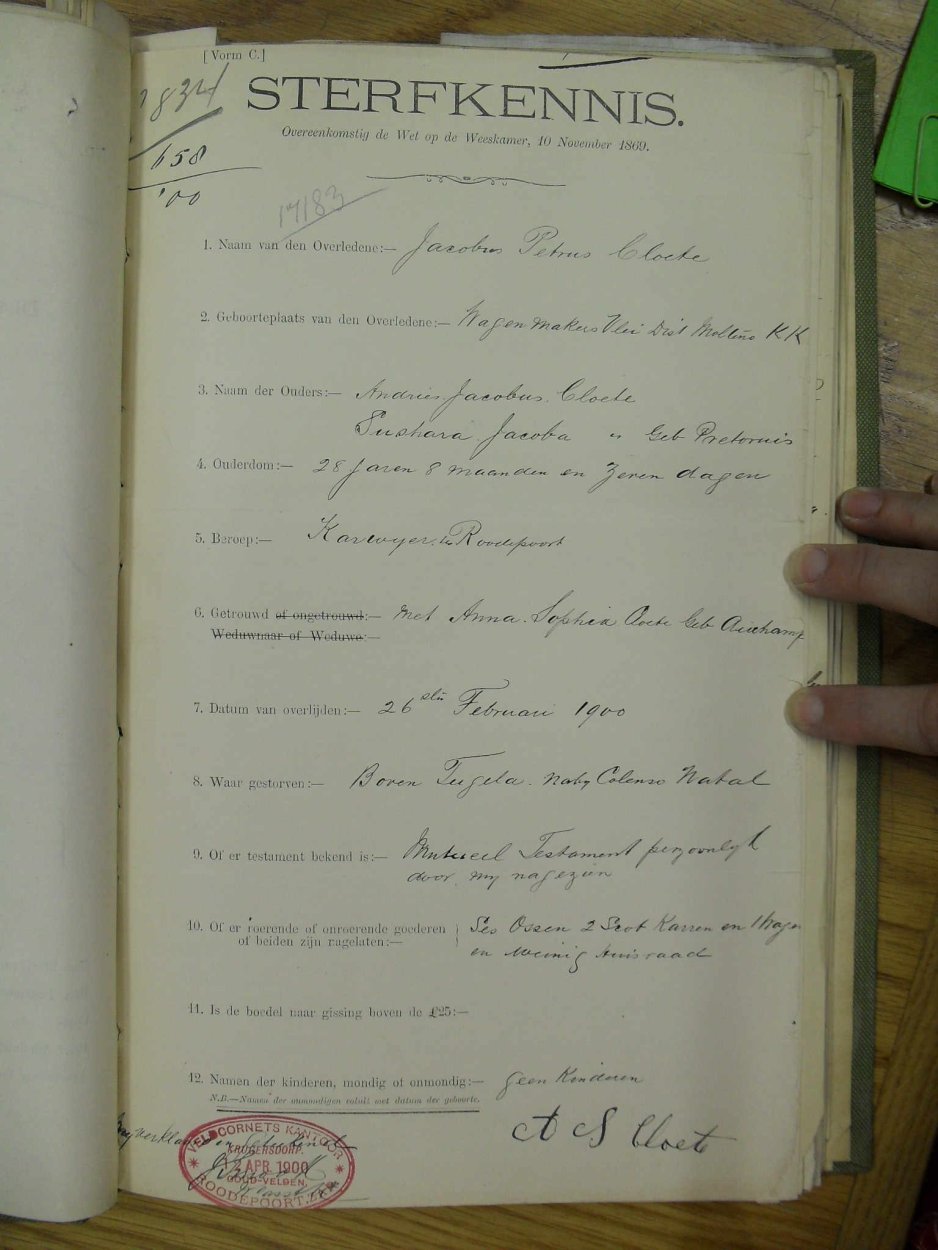 [Vorm C.]
834
STERFKENNIS.
Overeenkomstig de Wet op de Weeskamer, 10 November 1869.
658
'00
17183
1. Naam van den Overledene:— Jacobus Petrus Cloete
2. Geboorteplaats van den Overledene:— Wagen makers Vlei Dist Molteno KK
3. Naam der Ouders:— Andries Jacobus Cloete
Jacoba " Geb Pretorius
4. Ouderdom:— 28 Jaren 8 maanden en Zeven dagen
5. Beroep:— Karweyer te Roodepoort
6. Getrouwd of ongetrouwd:— Met Anna Sophia Cloete Geb
Weduwnaar of Weduwe:—
7. Datum van overlijden:— 26 sten Februari 1900
8. Waar gestorven:— Boven Tugela naby Colenso Natal
9. Of er testament bekend is:— Mutueel Testament persoonlyk
door my nagezien
10. Of er roerende of onroerende goederen } Ses Ossen 2 Scot Karren en 1 Wagen
of beiden zijn nagelaten:— en weinig Huisraad
11. Is de boedel naar gissing boven de £25:—
12. Namen der kinderen, mondig of onmondig:— geen Kinderen
N.B.—Namen der onmondigen voluit met datum der geboorte.
A S Cloete
VELDCORNETS KANTOOR
KRUGERSDORP.
2 APR. 1900
GOUD-VELDEN.
ROODEPOORT, ZAR